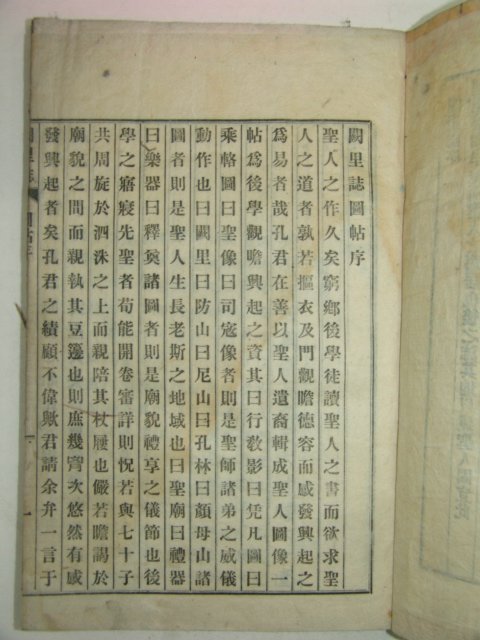 闕里誌圖帖序
聖人之作久矣窮鄉後學徒讀聖人之書而欲求聖
人之道者孰若摳衣及門觀瞻德容而感發興起之
爲易者哉孔君在善以聖人遺裔輯成聖人圖像一
帖爲後學觀瞻興起之資其曰行敎影曰凭凡圖曰
乘輅圖曰聖像曰司寇像者則是聖師諸弟之威儀
動作也曰闕里曰防山曰尼山曰孔林曰顏母山諸
圖者則是聖人生長老斯之地域也曰聖廟曰禮器
曰樂器曰釋奠諸圖者則是廟貌禮享之儀節也後
學之寤寐先聖者荀能開卷審詳則怳若與七十子
共周旋於泗洙之上而親陪其杖屨也儼若瞻謁於
廟貌之間而親執其豆籩也則庶幾胷次悠然有感
發興起者矣孔君之績顧不偉歟君請余弁一言于
一